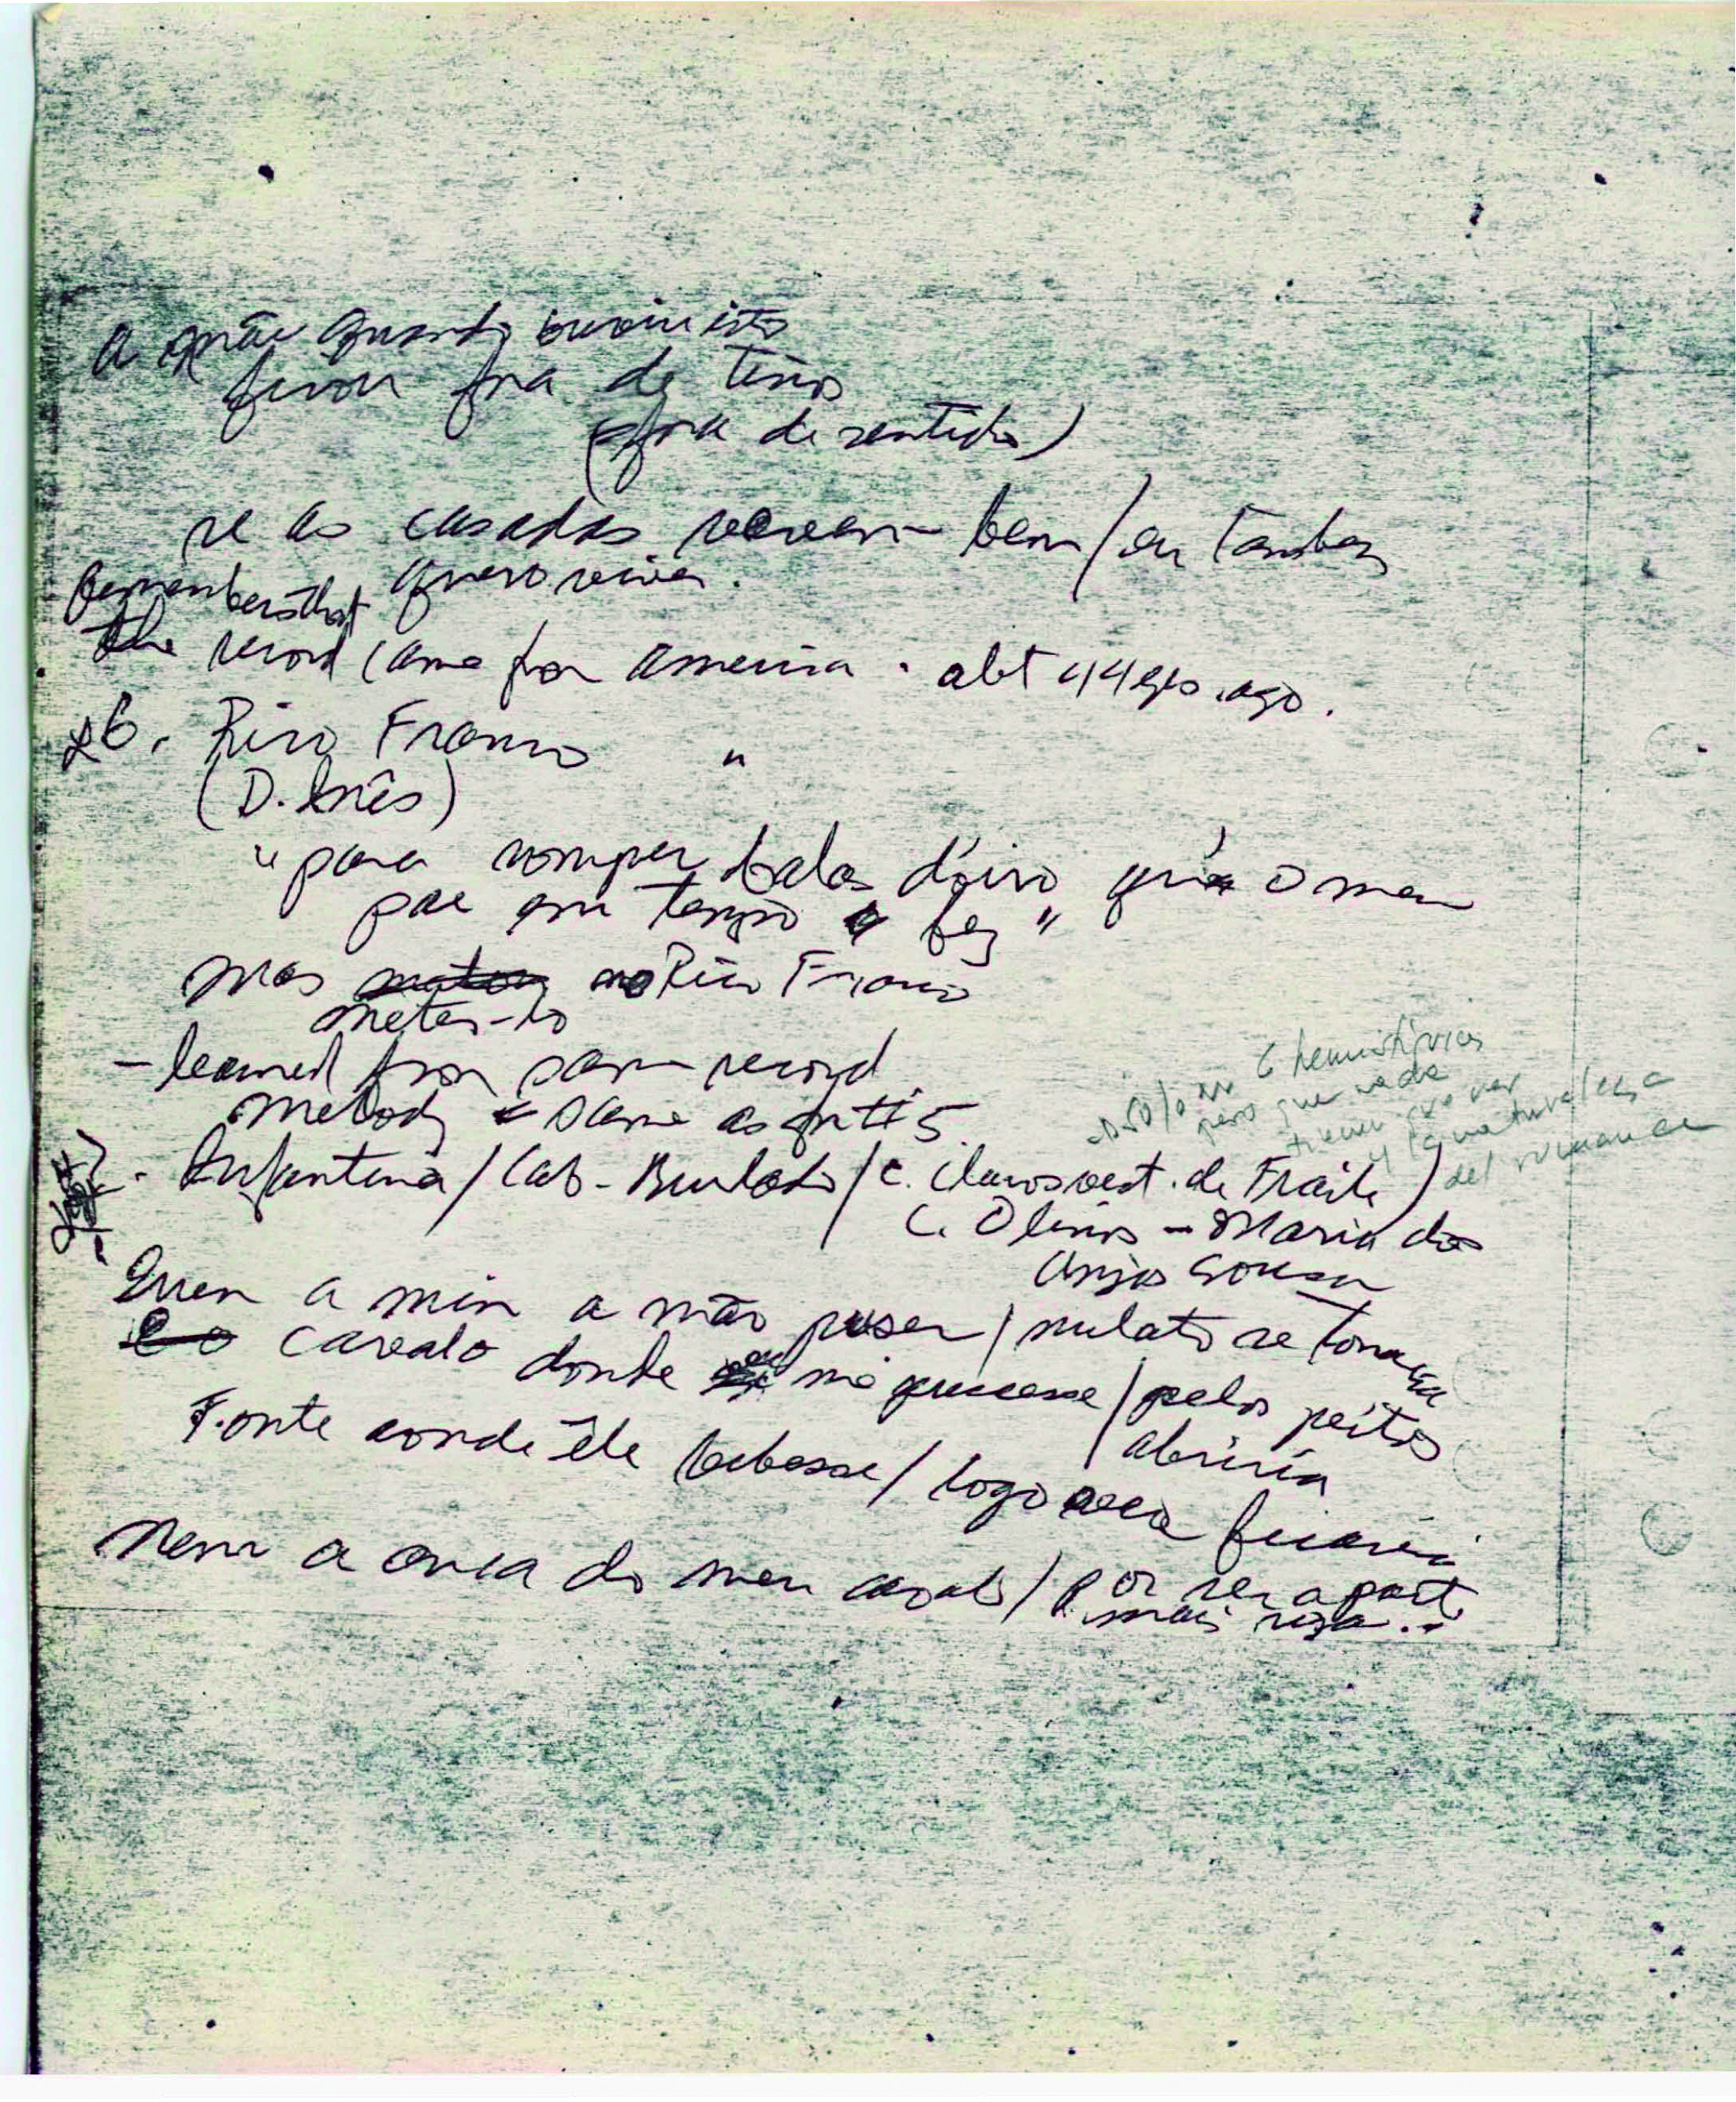 a mãe quando ouviu isto
ficou fora de tino
(fora de sentido)
se as casadas vivem bem / eu tambem
quero viver.
remembers that
the record came from America . abt 44 yrs. ago.
26. Rico Franco "
(D. Inês)
" para romper balas d'oiro que o meu
pae em tempo fez "
mas no Rico Franco
meter-lo
- learned from same record
melody = same as
- 6 hemistiquios
pero que nada
tienen que ver
y la naturaleza
del romance
. Infantina / Cab. Burlado / C. Claros vest. de Fraile )
C. Olinos - Maria dos
Anjos Sousa
Quem a mim a mão puser / mulato se tornaria
cavalo donde me pusesse / pelos peitos
/ abriria
Fonte aonde êle bebesse / logo seca ficaria
Nem a anca do meu cavalo / por ser a parte
mais rija . .